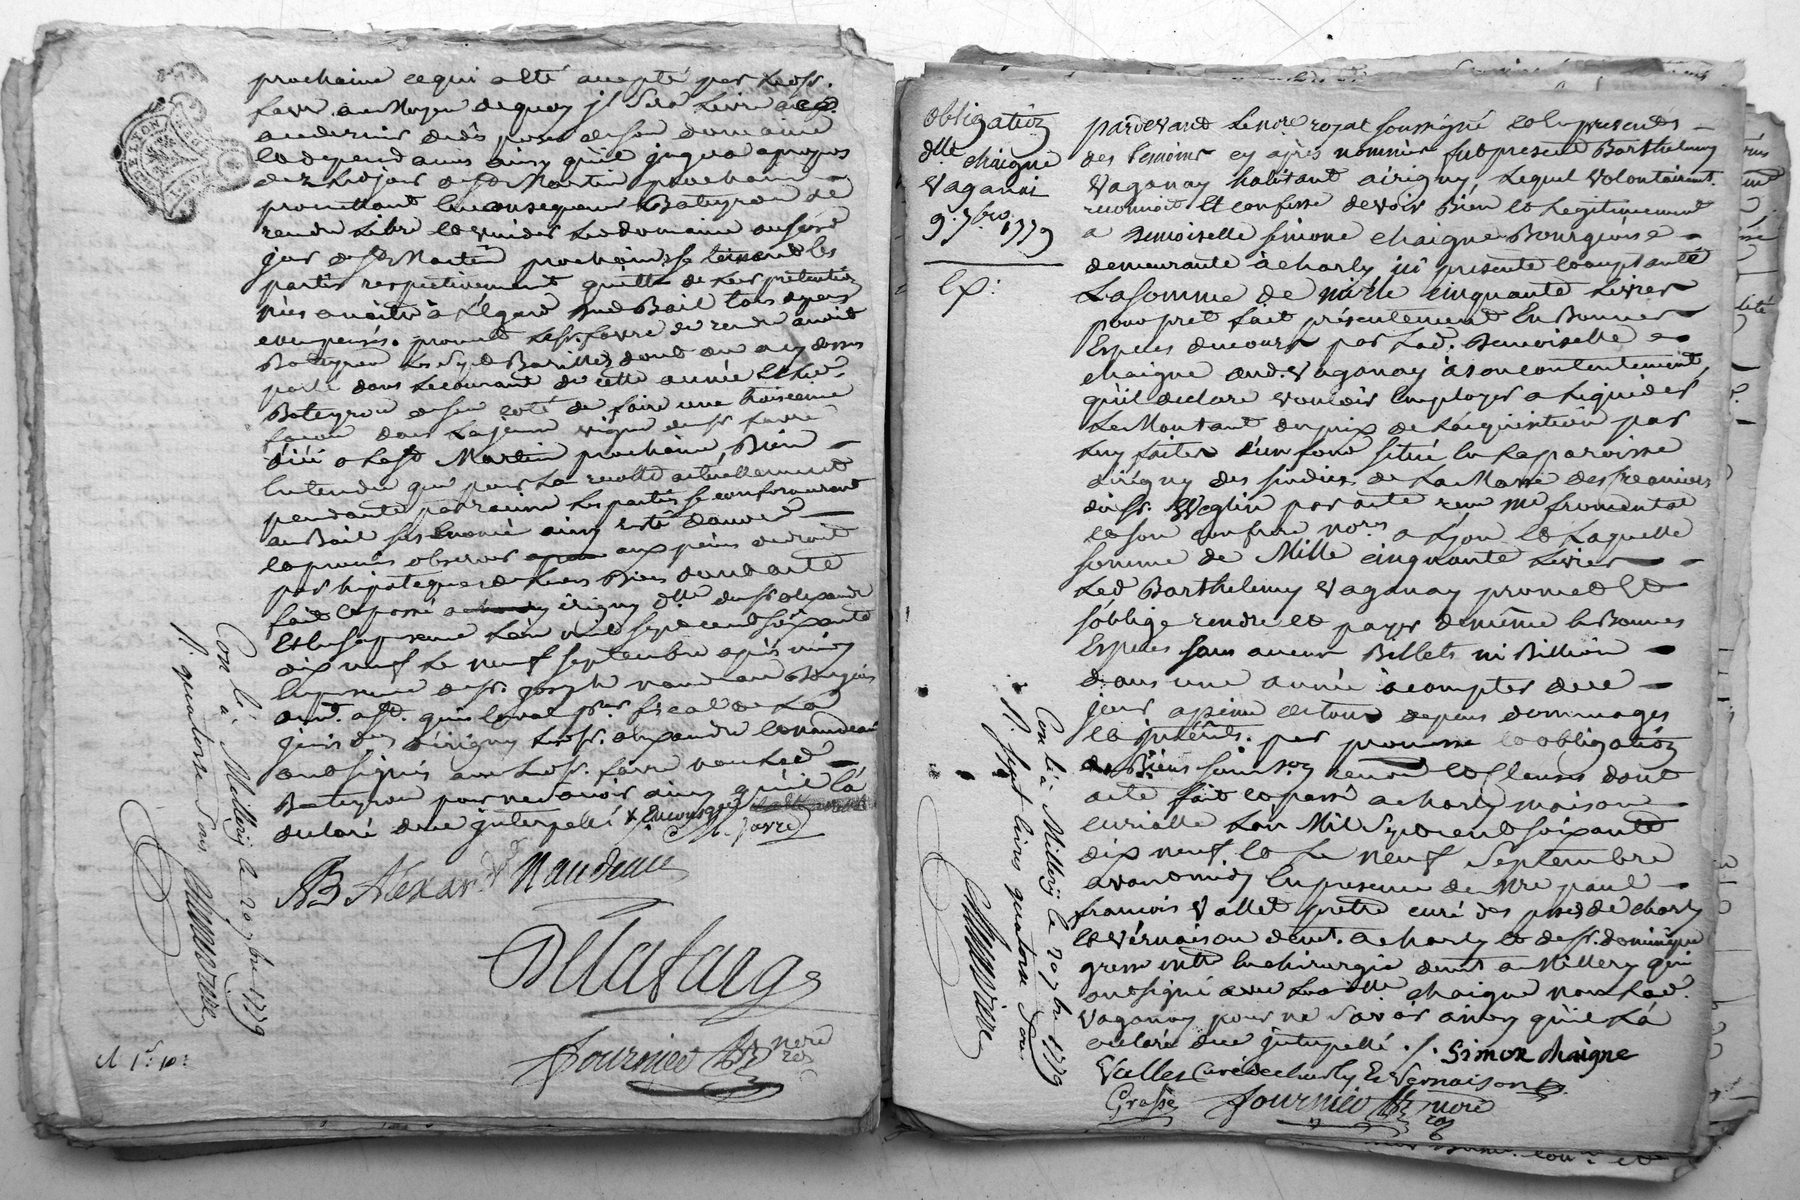 prochaine ce qui a été accepté par led. sr.
favre au Moyen de quoy il sera Livre
au dernier de son domaine
et dependances ainsy qu'il jugera apropos
jour de st Martin prochain
promettant en consequence Bateyron de
rendre Libre et vuider Led domaine au susd
jour de st Martin prochain, se tenant les
parties respectivement quitte de Leurs pretentions
a l'égard dud Bail tous depens
compensés. promet led sr. favre de rendre audit
Bateyron
porté dans Lecourant de cette année et led
Bateyron de son coté de faire une troisieme
façon dans La jeune vigne dud sr favre
d'ici a La st Martin prochaine, Bien
Entendu que pour La recolte actuellement
pendante par racine Les parties se conformeront
au Bail
observer aux peines de droit
par hipoteque de Leurs Biens dont acte
fait et passé a irigny dlle du sr alexandre
Lan mil sept cent soixante
dix neuf Le neuf septembre après midy
En presence de sr. joseph naudeau Bourgeois
fiscal de La
d'irigny Led sr. alexandre et naudeau
ont signés avec Led sr. favre non Led
Bateyron pour ne scavoir ainsy qu'il L'a
declaré de ce interpellé
favre
Alexandre Naudeau
Delafarge
fournier nore
Con lé à Millery le 20 7bre 1779
R. quatorze sols
Obligation
dlle chaigne
Vaganai
9. 7bre 1779
Ex:
pardevant Lenre. royal soussigné et En presence
des temoins cy après nommés fut present Barthelemy
Vaganay habitant a irigny, Lequel volontairemt.
reconnoit et confesse devoir Bien et Legitimement
a Demoiselle simone chaigne Bourgeoise
demeurante à charly ici presente et acceptante
La somme de mille cinquante Livres
pour pret fait présentement En Bonnes
Especes de cours par Lad. Demoiselle
chaigne aud. Vaganay à son contentement,
qu'il declare vouloir Employer a Liquider
Le Montant du prix de L'acquisition par
Luy faite d'un fond situé En La paroisse
d'irigny des sindics de La Masse des creanciers
du sr. Weglin par acte recu me fromental
et son confrere nores a Lyon et Laquelle
somme de Mille cinquante Livres
Led Barthelemy Vaganay promet et
s'oblige rendre et payer de même En Bonnes
Especes sans aucun Billets ni Billion
dans une année à compter de ce
jour a peine de tous depens dommages
et interêts. par promesse et obligation
de Biens soumission renon et Clauses dont
acte fait et passé a charly maison
curialle Lan Mil sept cent soixante
dix neuf, et Le neuf septembre
avant midy En presence de Mre paul
francois Vallet pretre curé des paroisses de charly
et vernaison demt. a charly et de sr. dominique
grasse mtre En chirurgie demt a Millery qui
ont signé avec Lad dlle chaigne non Led.
Vaganay pour ne scavoir ainsy qu'il L'a
declaré de ce interpellé ./.
Simone chaigne
Vallet Curé de charly Et Vernaison
Grasse fournier nore
Con lé à Millery le 20 7bre 1779
R. sept livres quatorze sols